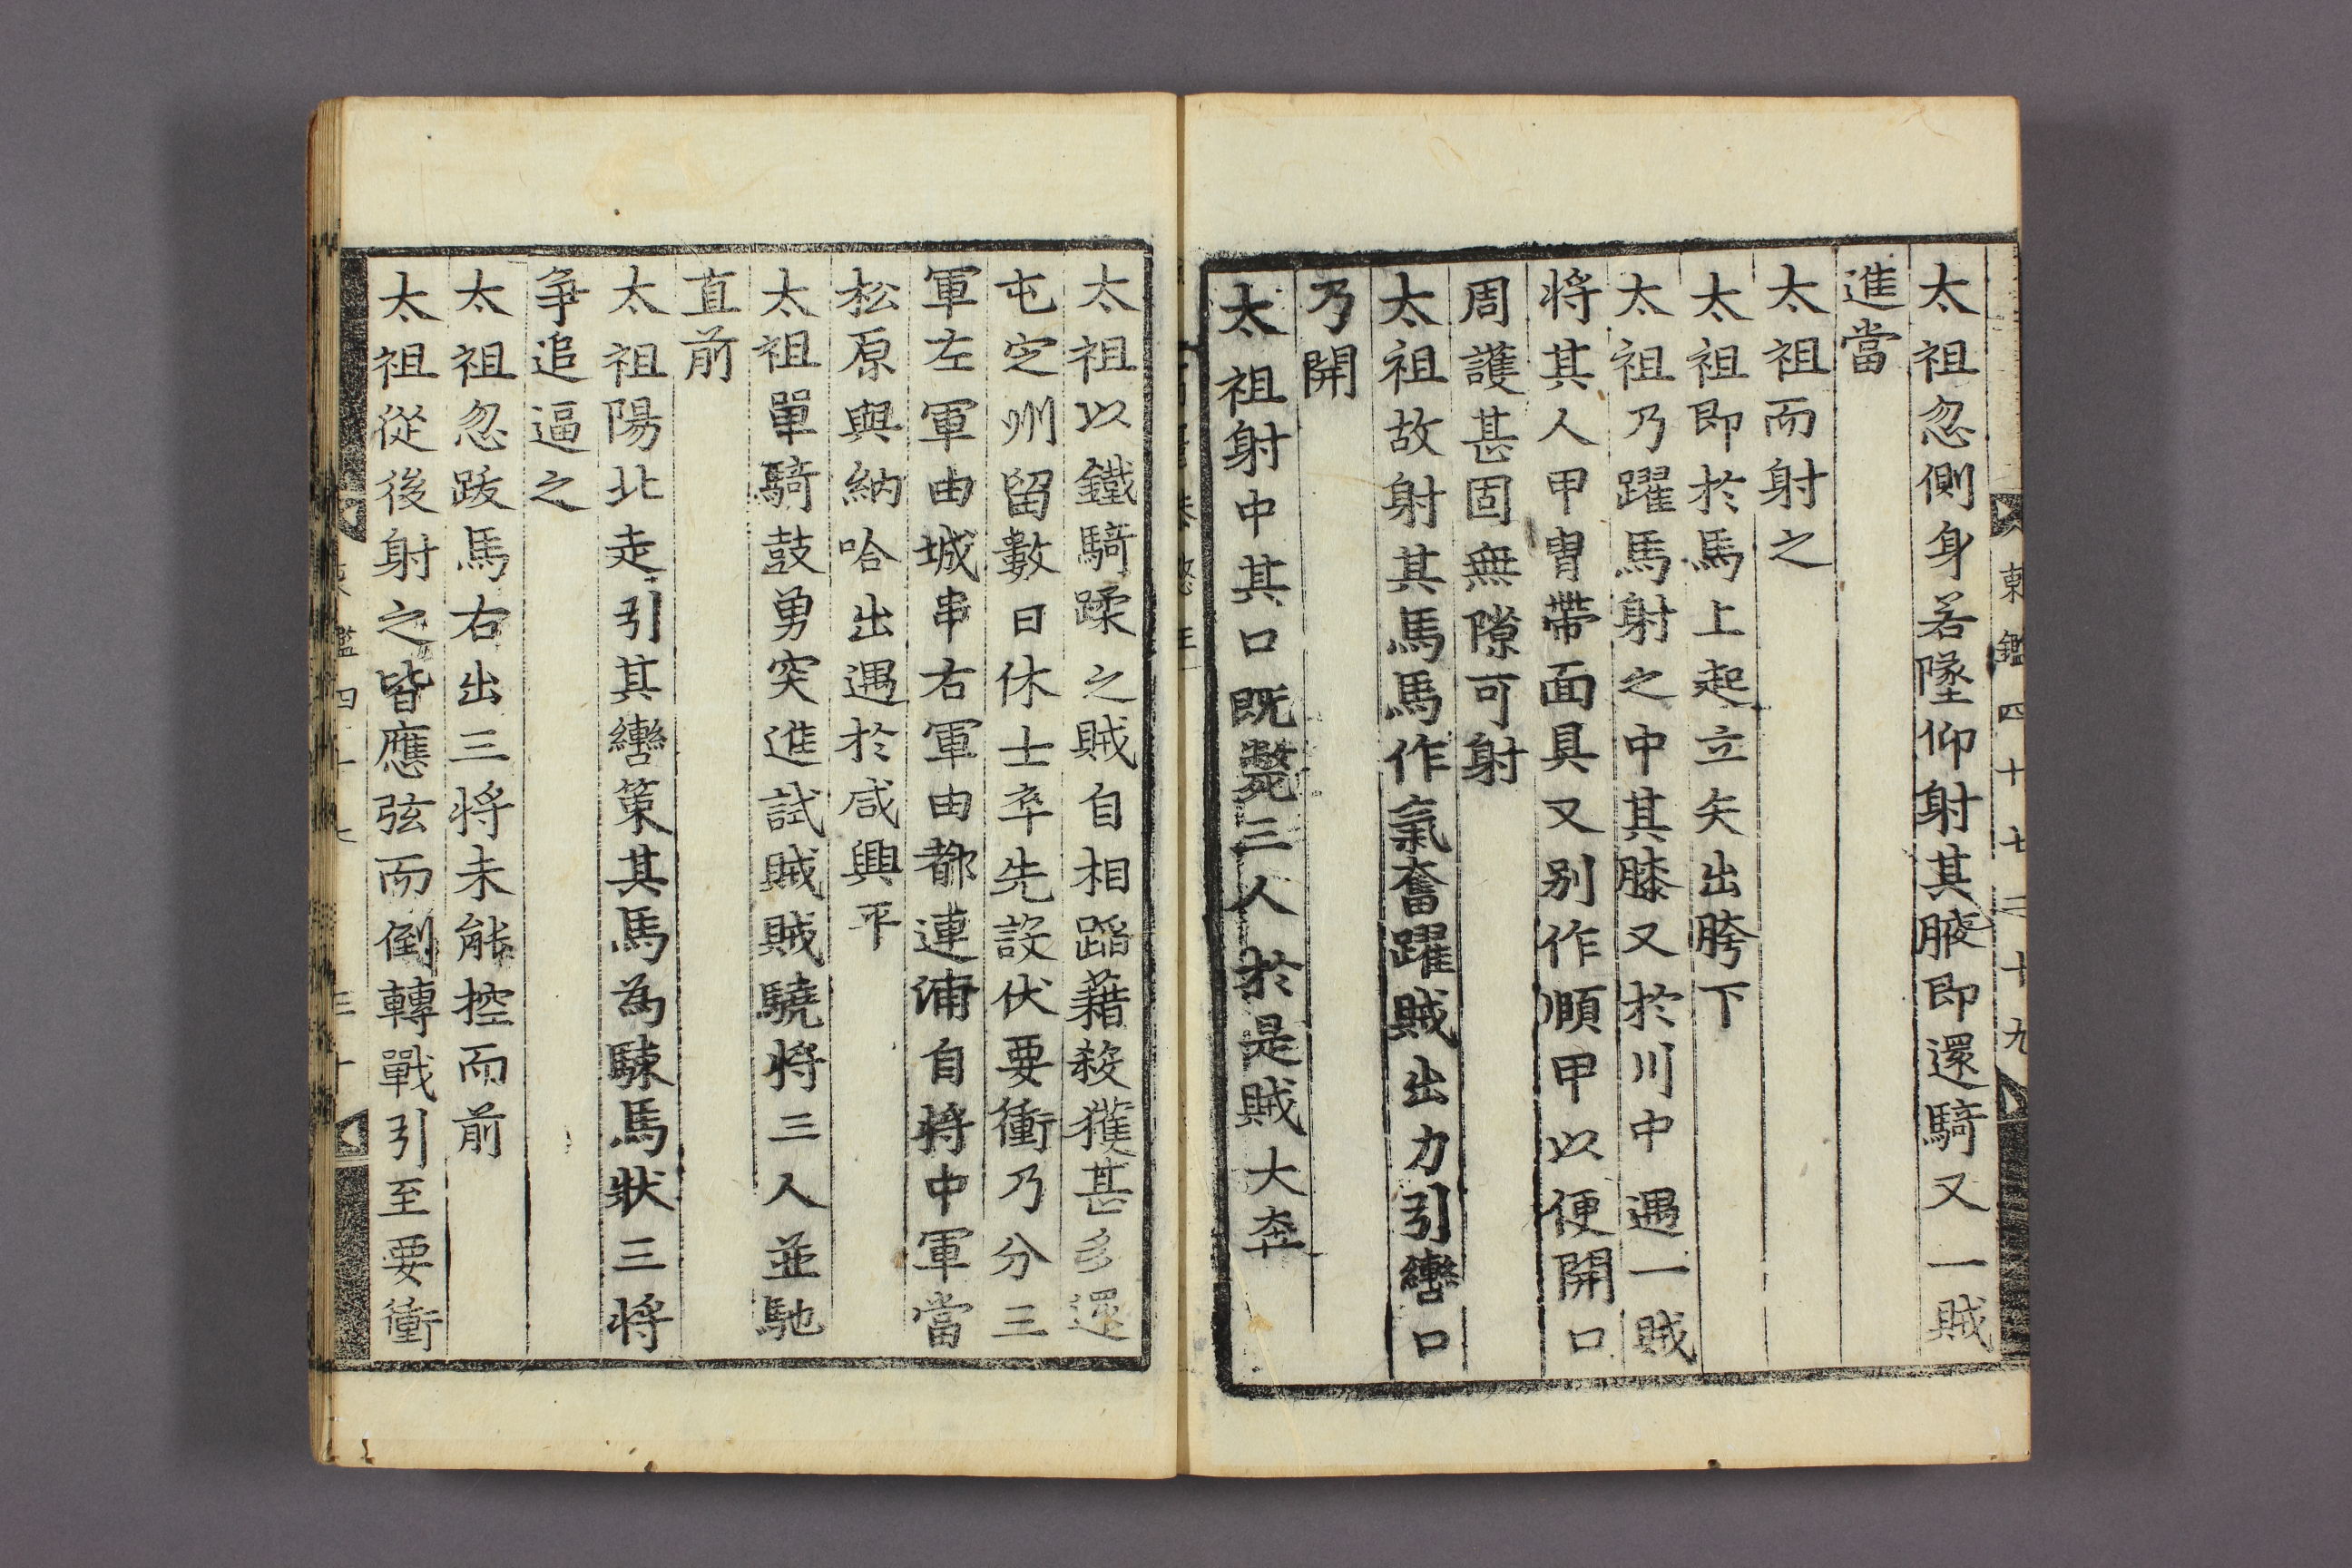 東鑑四十七 二十九
太祖忽側身若墜仰射其腋即還騎又一賊
進當
太祖而射之
太祖即於馬上起立矢出胯下
太祖乃躍馬射之中其膝又於川中遇一賊
將其人甲冑帶面具又別作頤甲以便開口
周護甚固無隙可射
太祖故射其馬馬作氣奮躍賊出力引轡口
乃開
太祖射中其口既斃三人於是賊大奔
太祖以鐵騎蹂之賊自相蹈藉殺獲甚多還
屯定州留數日休士卒先設伏要衝乃分三
軍左軍由城串右軍由都連浦自將中軍當
松原與納哈出遇於咸興平
太祖單騎鼓勇突進試賊賊驍將三人並馳
直前
太祖陽北走引其轡策其馬為駷馬狀三將
爭追逼之
太祖忽跋馬右出三將未能控而前
太祖從後射之皆應弦而倒轉戰引至要衝